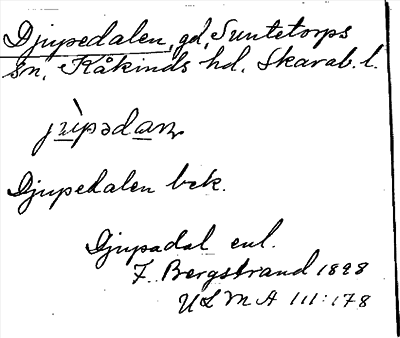 Djupedalen, gd, Suntetorps
sn, Kåkinds hd, Skarab. l.
Djupedalen bek.
Djupadal enl.
F. Bergstrand 1828
ULMA 111:178